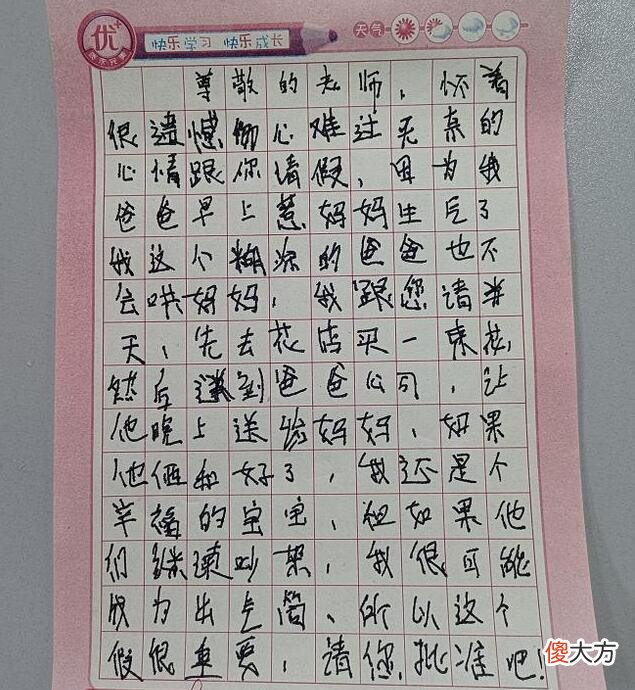 优+
快乐学习 快乐成长
天气
尊敬的老师，怀着
很遗憾御心难过无奈的
心情跟你请假，因为我
爸爸早上惹妈妈生气了
我这个糊涂的爸爸也不
会哄妈妈，我跟您请半
天，先去花店买一束花，
然后送到爸爸公司，让
他晚上送给妈妈，如果
他俩和好了，我还是个
幸福的宝宝，但如果他
们继续吵架，我很可能
成为出气筒，所以这个
假很重要，请你批准吧！
傻大方